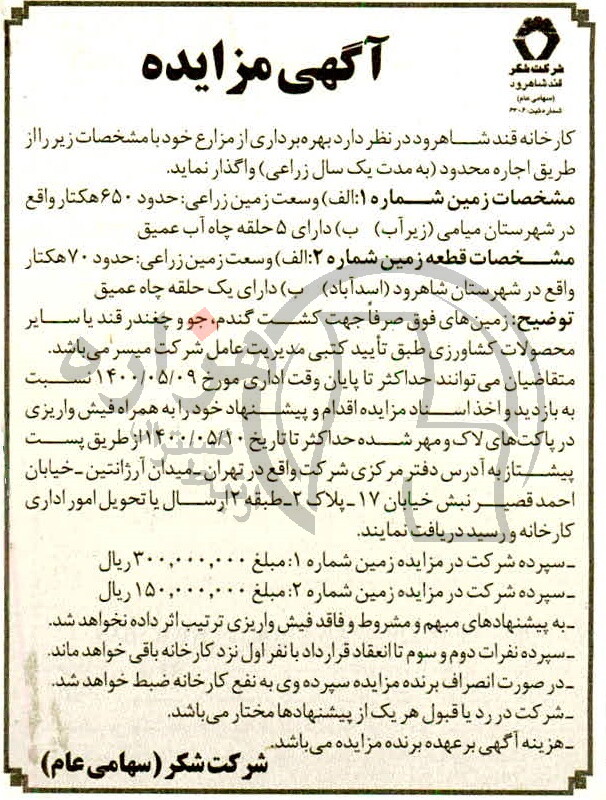 شرکت شکر
قند شاهرود
(سهامی عام)
شماره ثبت: ۶۳۰۶
آگهی مزایده
کارخانه قند شاهرود در نظر دارد بهره‌برداری از مزارع خود با مشخصات زیر را از
طریق اجاره محدود (به مدت یک سال زراعی) واگذار نماید.
مشخصات زمین شماره ۱: الف) وسعت زمین زراعی: حدود ۶۵۰ هکتار واقع
در شهرستان میامی (زیرآب) ب) دارای ۵ حلقه چاه آب عمیق
مشخصات قطعه زمین شماره ۲: الف) وسعت زمین زراعی: حدود ۷۰ هکتار
واقع در شهرستان شاهرود (اسدآباد) ب) دارای یک حلقه چاه عمیق
توضیح: زمین‌های فوق صرفاً جهت کشت گندم، جو و چغندر قند یا سایر
محصولات کشاورزی طبق تأیید کتبی مدیریت عامل شرکت میسر می‌باشد.
متقاضیان می‌توانند حداکثر تا پایان وقت اداری مورخ ۱۴۰۰/۰۵/۰۹ نسبت
به بازدید و اخذ اسناد مزایده اقدام و پیشنهاد خود را به همراه فیش واریزی
در پاکت‌های لاک و مهر شده حداکثر تا تاریخ ۱۴۰۰/۰۵/۱۰ از طریق پست
پیشتاز به آدرس دفتر مرکزی شرکت واقع در تهران ـ میدان آرژانتین ـ خیابان
احمد قصیر نبش خیابان ۱۷ ـ پلاک ۲ ـ طبقه ۲ ارسال یا تحویل امور اداری
کارخانه و رسید دریافت نمایند.
ـ سپرده شرکت در مزایده زمین شماره ۱: مبلغ ۳۰۰,۰۰۰,۰۰۰ ریال
ـ سپرده شرکت در مزایده زمین شماره ۲: مبلغ ۱۵۰,۰۰۰,۰۰۰ ریال
ـ به پیشنهادهای مبهم و مشروط و فاقد فیش واریزی ترتیب اثر داده نخواهد شد.
ـ سپرده نفرات دوم و سوم تا انعقاد قرارداد با نفر اول نزد کارخانه باقی خواهد ماند.
ـ در صورت انصراف برنده مزایده سپرده وی به نفع کارخانه ضبط خواهد شد.
ـ شرکت در رد یا قبول هر یک از پیشنهادها مختار می‌باشد.
ـ هزینه آگهی بر عهده برنده مزایده می‌باشد.
شرکت شکر (سهامی عام)
هزاره